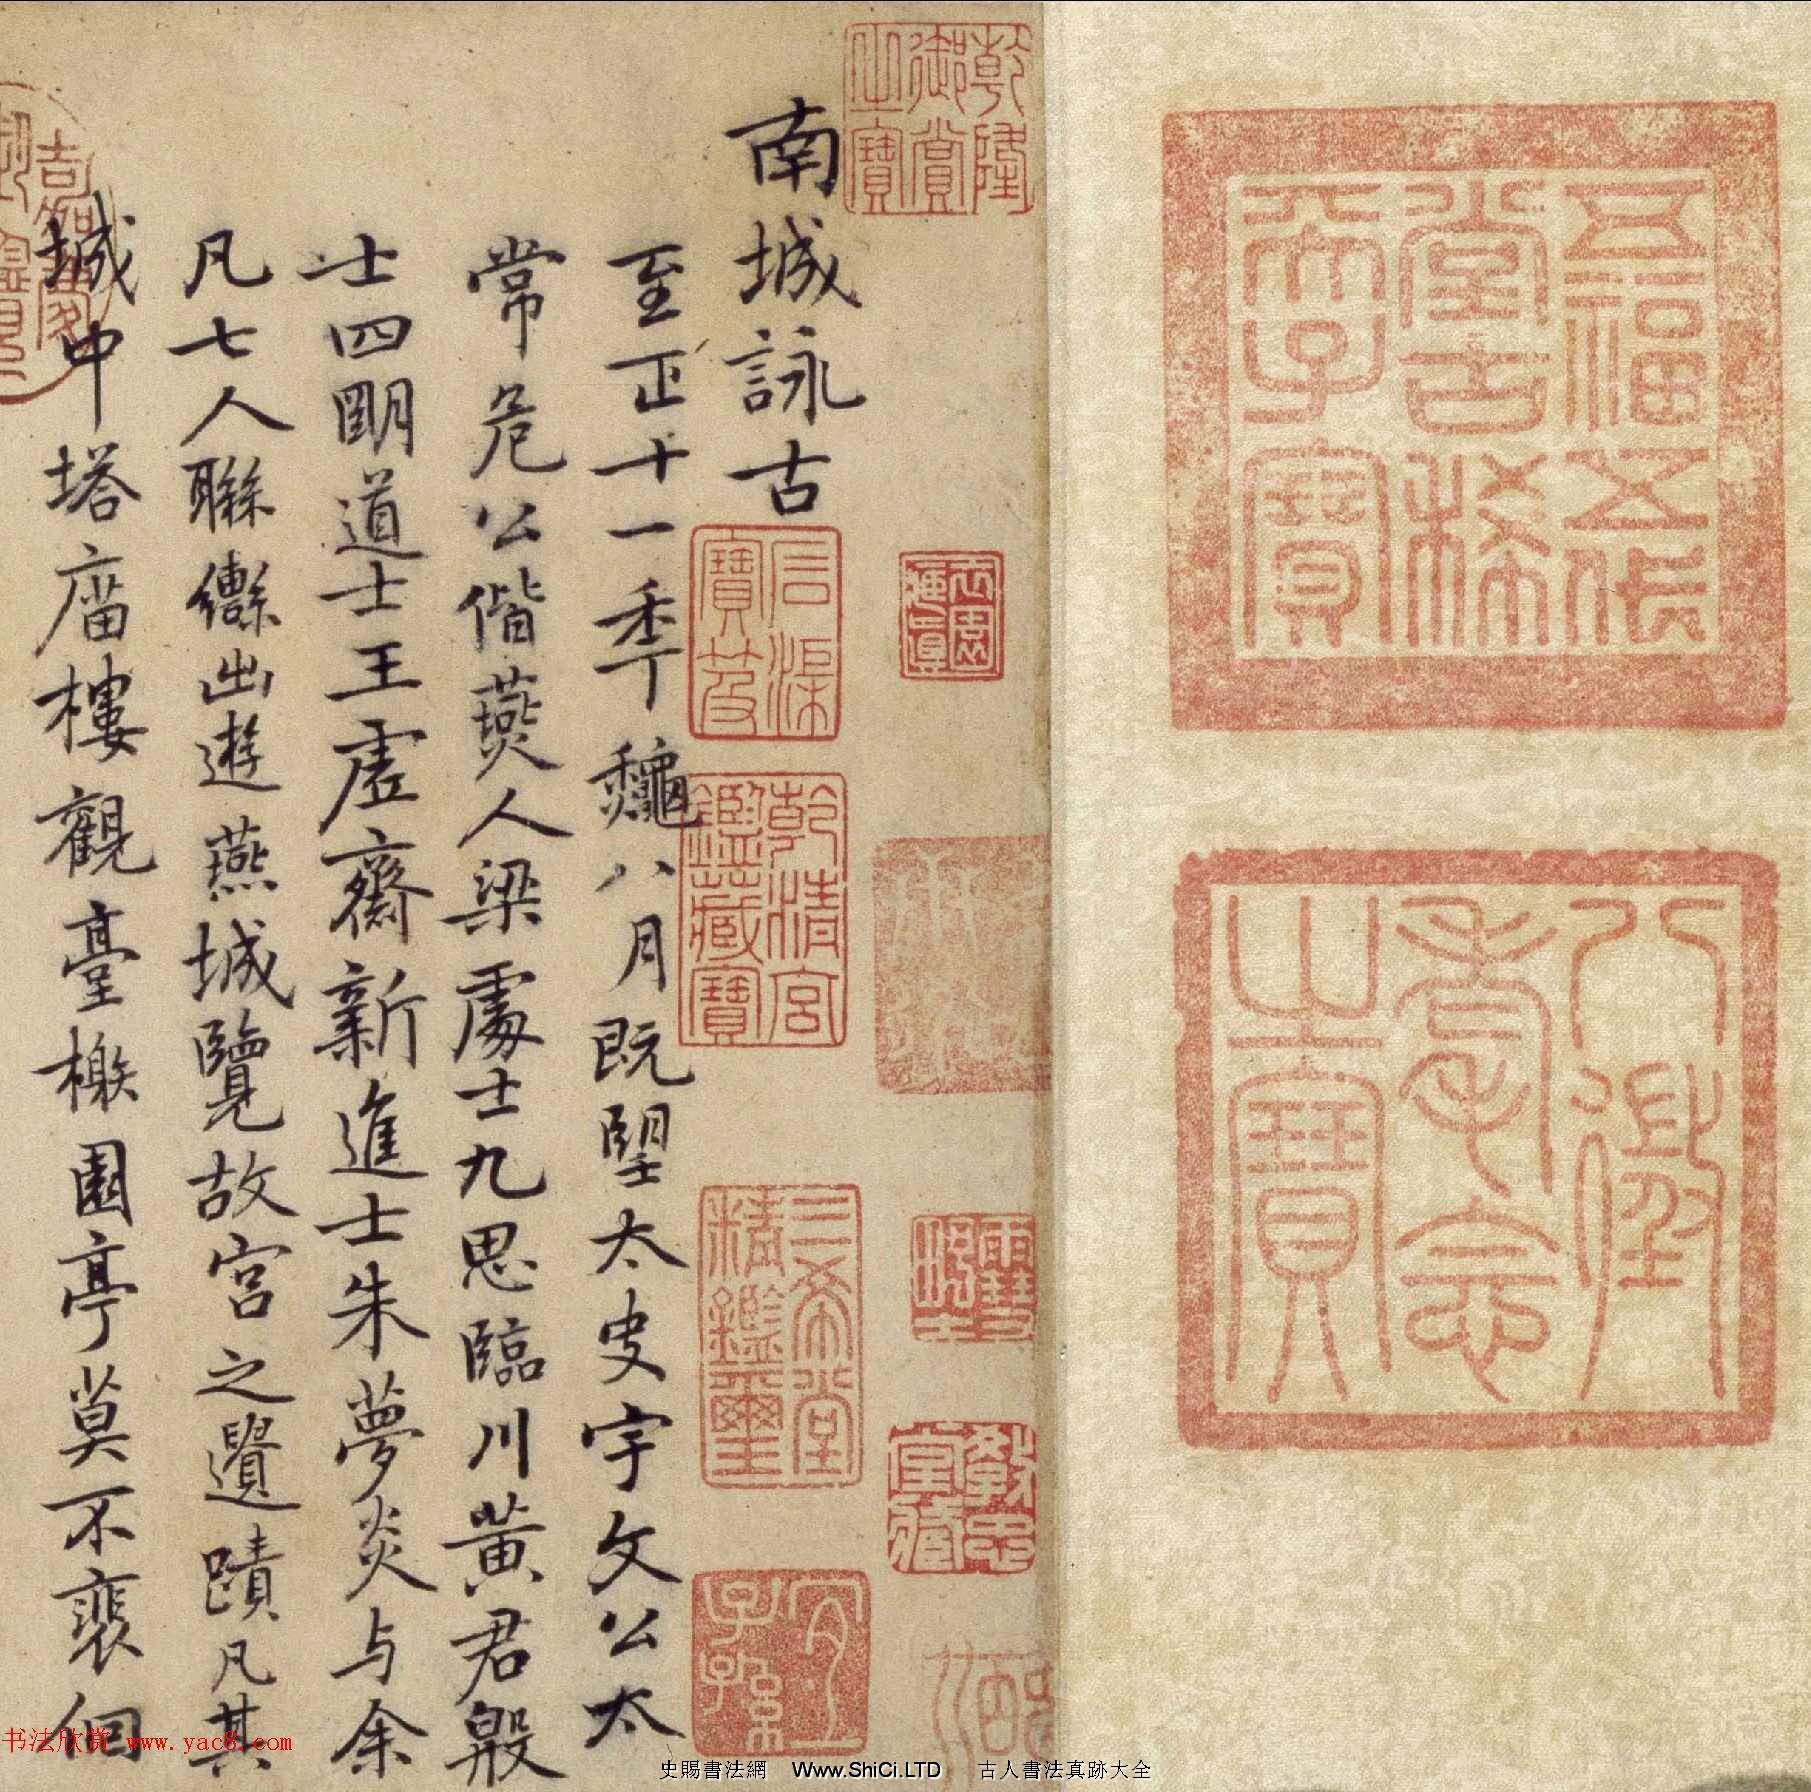 南城詠古
至正十一年龝八月既望太史宇文公太
常危公偕燕人梁處士九思臨川黃君殷
士四明道士王虛齋新進士朱夢炎与余
凡七人聯轡出遊燕城覽故宮之遺蹟凡其
城中塔廟樓觀臺榭園亭莫不裵徊
乾隆御賞之寶
五福五代堂古稀天子寶
八徵耄念之寶
石渠寶笈
乾清宮鑑藏寶
三希堂精鑑璽
宜子孫
书法欣赏 www.yac8.com
史賜書法網 Www.ShiCi.LTD 古人書法真跡大全